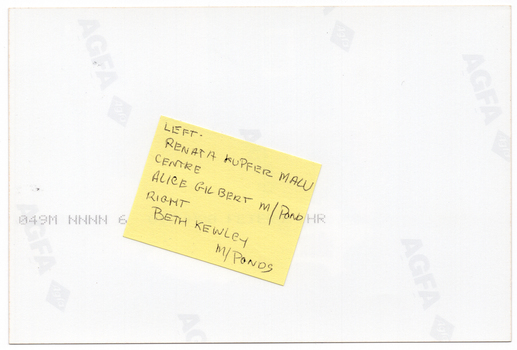 AGFA
AGFA
AGFA
LEFT.
RENATA KUPFER MALU
CENTRE
ALICE GILBERT M/POND
RIGHT
BETH KEWLEY
M/PONDS
049M NNNN 6 HR
AGFA
AGFA
AGFA